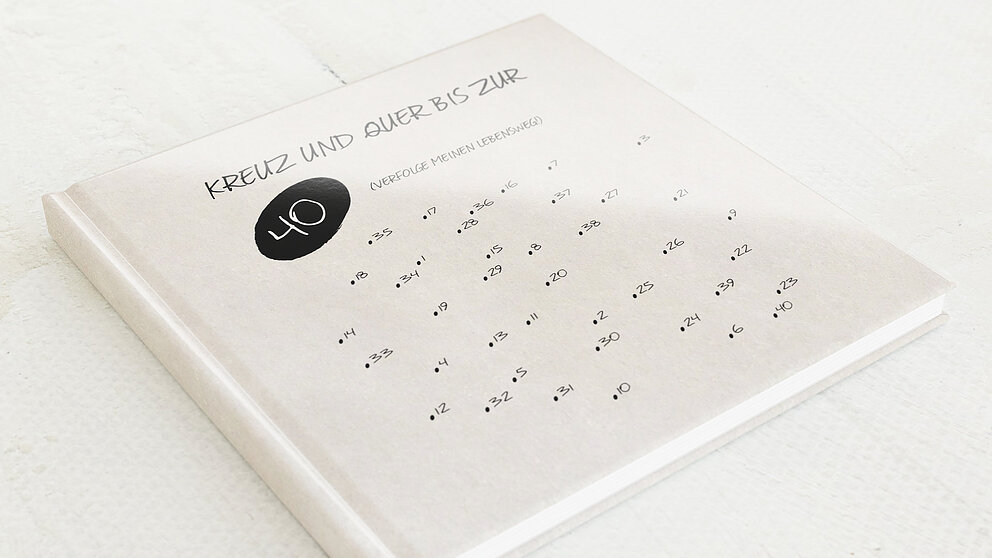 KREUZ UND QUER BIS ZUR
40
(VERFOLGE MEINEN LEBENSWEG!)
.3
.7
.16 .37 .27 .21
.17 .36
.28 .38 .9
.35
.1 .15 .8 .26 .22
.18 .34 .29 .20
.25 .39 .23
.19 .11 .2 .24 .40
.14 .13 .30 .6
.33 .4
.5
.12 .32 .31 .10